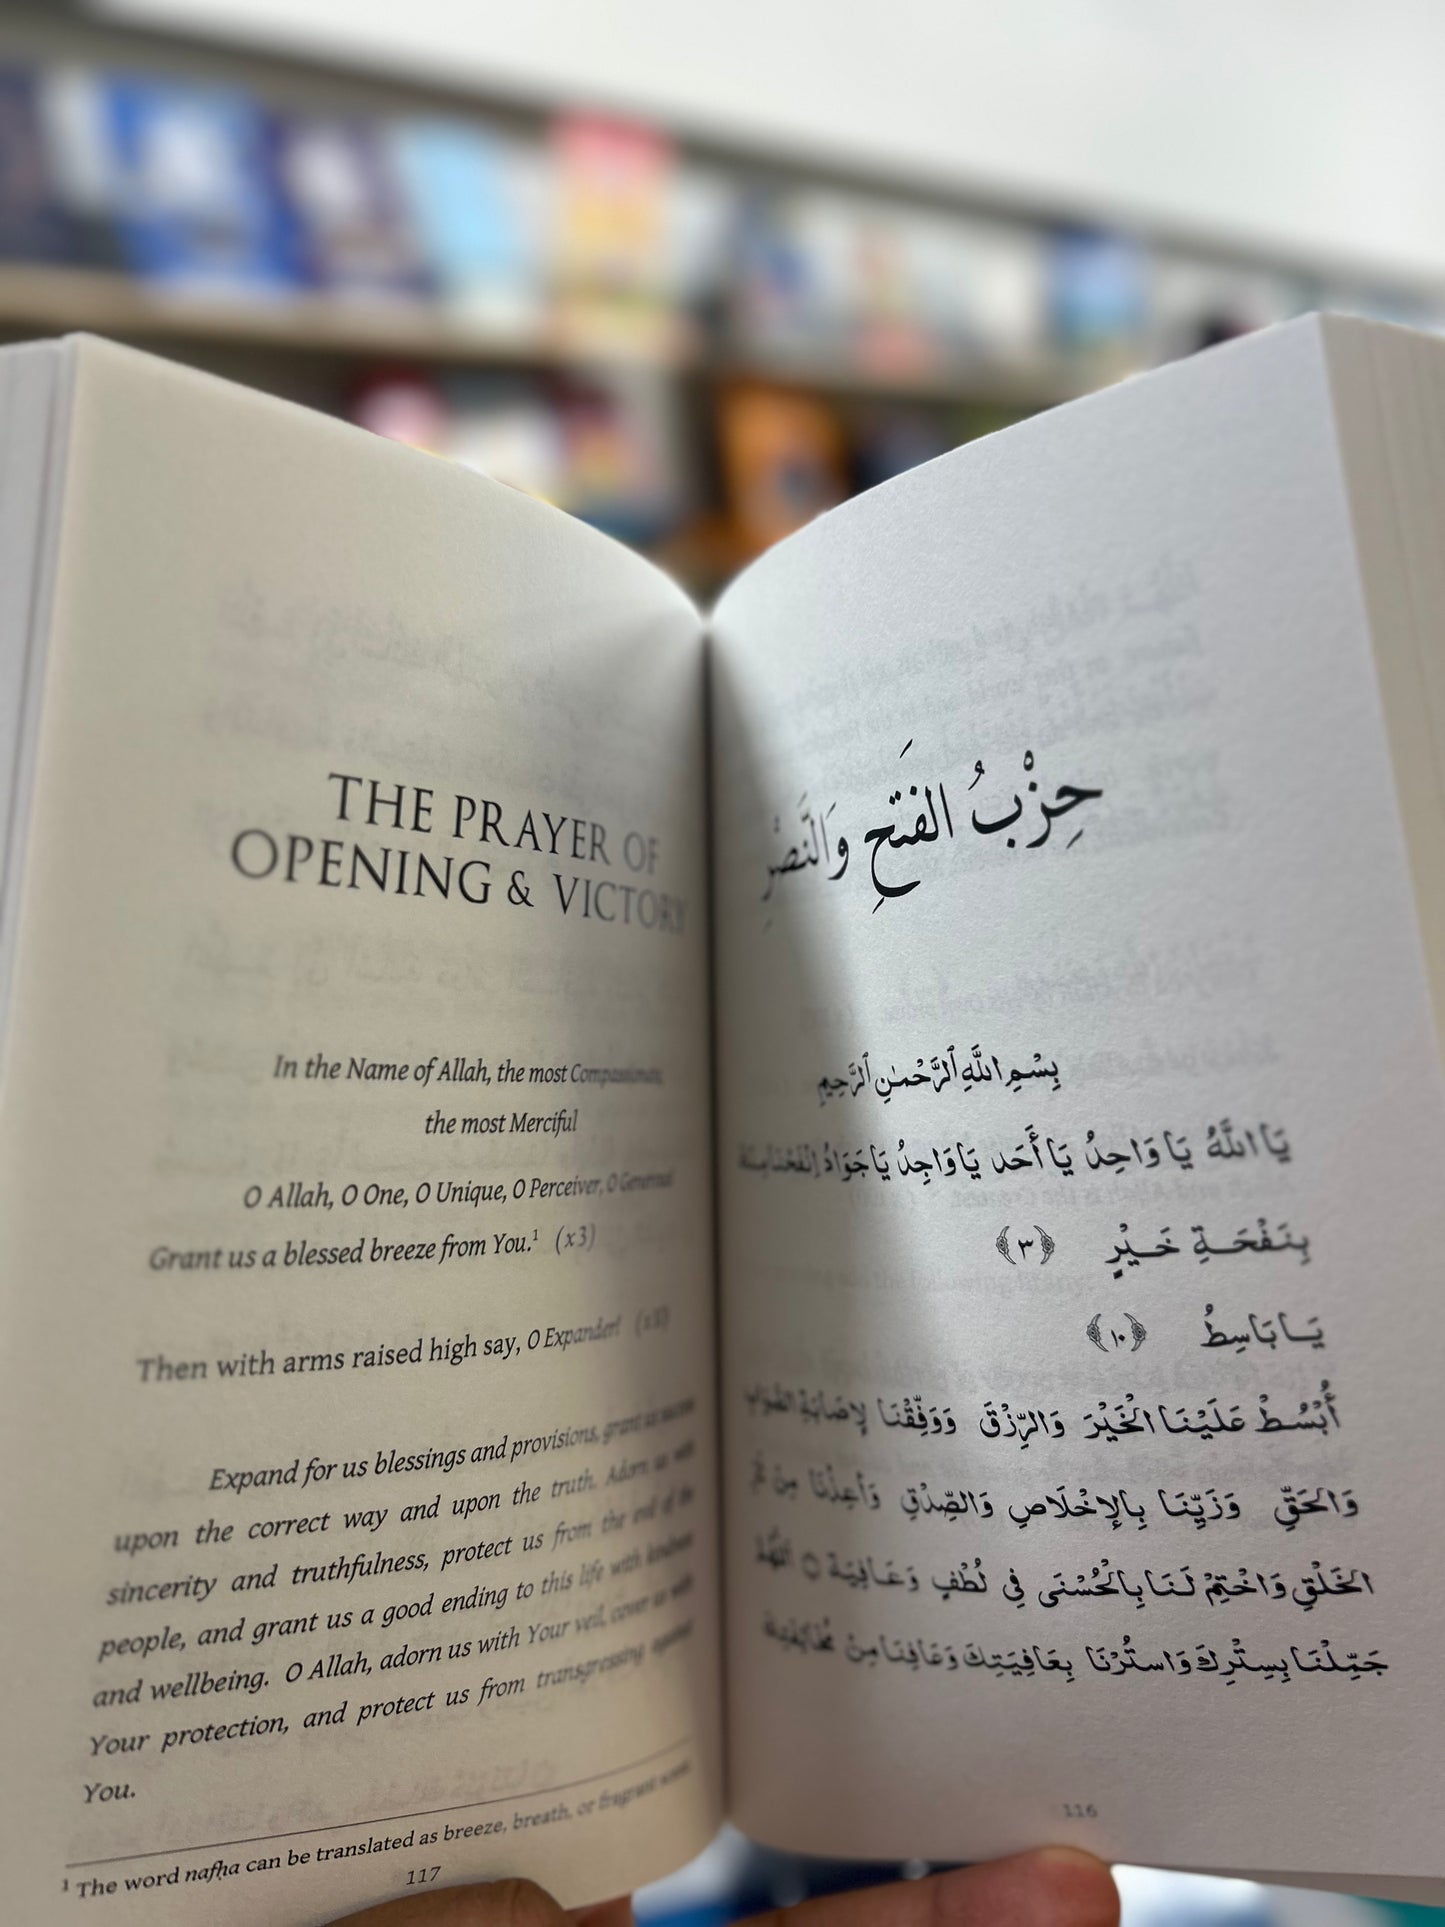 THE PRAYER OF
OPENING & VICTORY
In the Name of Allah, the most Compassionate,
the most Merciful
O Allah, O One, O Unique, O Perceiver, O Generous!
Grant us a blessed breeze from You.¹ (x3)
Then with arms raised high say, O Expander!
Expand for us blessings and provisions, grant us
upon the correct way and upon the truth. Adorn us with
sincerity and truthfulness, protect us from the evil of the
people, and grant us a good ending to this life with kindness
and wellbeing. O Allah, adorn us with Your veil, cover us with
Your protection, and protect us from transgressing against
You.
¹ The word nafḥa can be translated as breeze, breath, or fragrant
117
حِزْبُ الفَتحِ وَالنَّصْرِ
بِسْمِ اللَّهِ الرَّحْمٰنِ الرَّحِيمِ
يَا اللَّهُ يَا وَاحِدُ يَا أَحَد يَا وَاجِدُ يَا جَوَادُ اِنْفَحْنَا مِنْكَ
بِنَفْحَةِ خَيْرٍ ﴿٣﴾
يَا بَاسِطُ ﴿١٠﴾
أُبْسُطْ عَلَيْنَا الْخَيْرَ وَالرِّزْقَ وَوَفِّقْنَا لِإِصَابَةِ الصَّوَابِ
وَالحَقِّ وَزَيِّنَّا بِالإِخْلَاصِ وَالصِّدْقِ وَأَعِذْنَا مِنْ
الخَلْقِ وَاخْتِمْ لَنَا بِالْحُسْنَى فِي لُطْفٍ وَعَافِيَة ۝ اللَّهُمَّ
جَمِّلْنَا بِسِتْرِكَ وَاسْتُرْنَا بِعَافِيَتِكَ وَعَافِنَا مِنْ
116